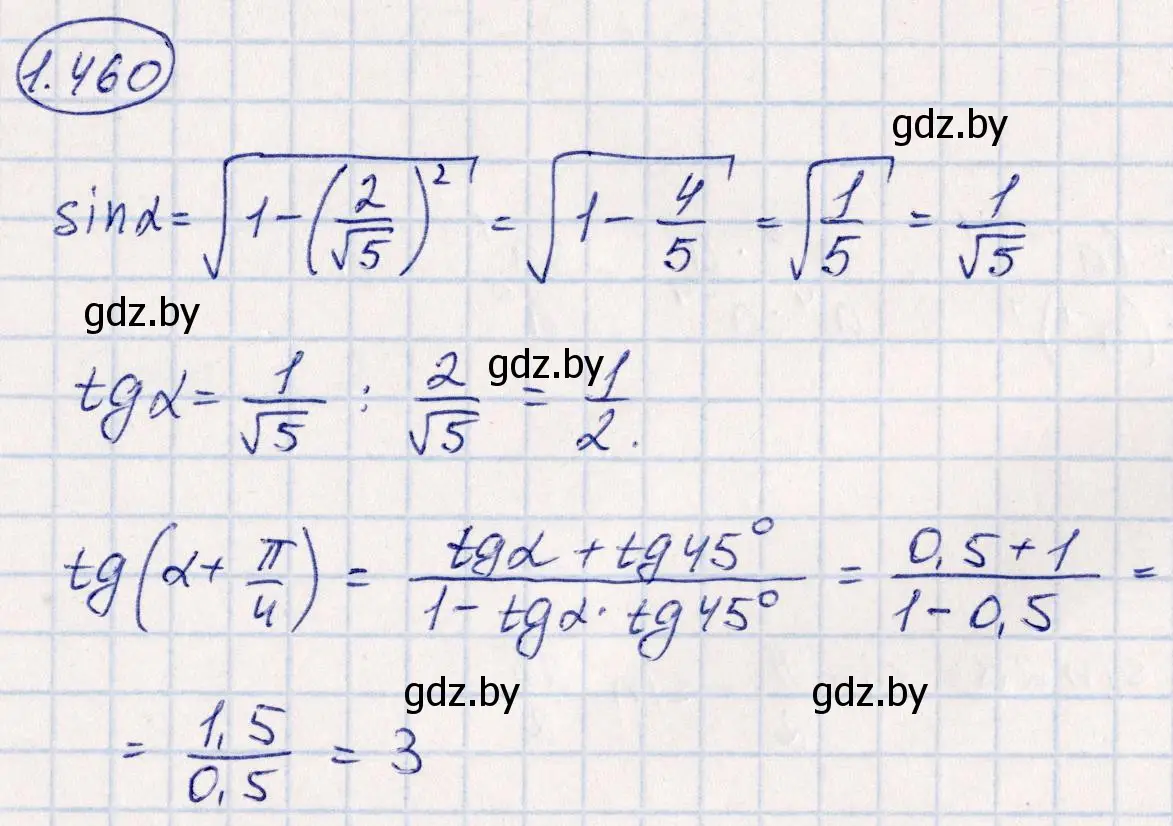 1.460
gdz.by
sinα = √(1 − (2/√5)²) = √(1 − 4/5) = √(1/5) = 1/√5
gdz.by
tgα = 1/√5 : 2/√5 = 1/2.
gdz.by
tg(α + π/4) = (tgα + tg45°)/(1 − tgα · tg45°) = (0,5 + 1)/(1 − 0,5) =
gdz.by gdz.by
= 1,5/0,5 = 3